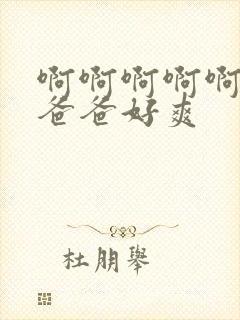 啊啊啊啊啊
爸爸好爽
杜朋舉